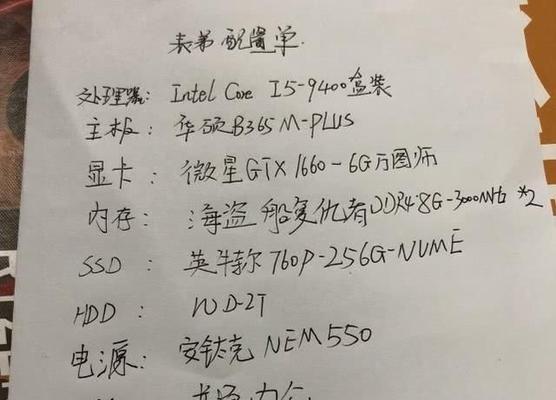 表弟配置单.
处理器: Intel Core I5-9400盒装
主板: 华硕B365M-PLUS
显卡: 微星GTX1660-6G万图师
内存: 海盗船复仇者DDR4 8G-3000MHz *2
SSD: 英特尔760P-256G-NVME
HDD: WD-2T
电源: 安钛克NEM550